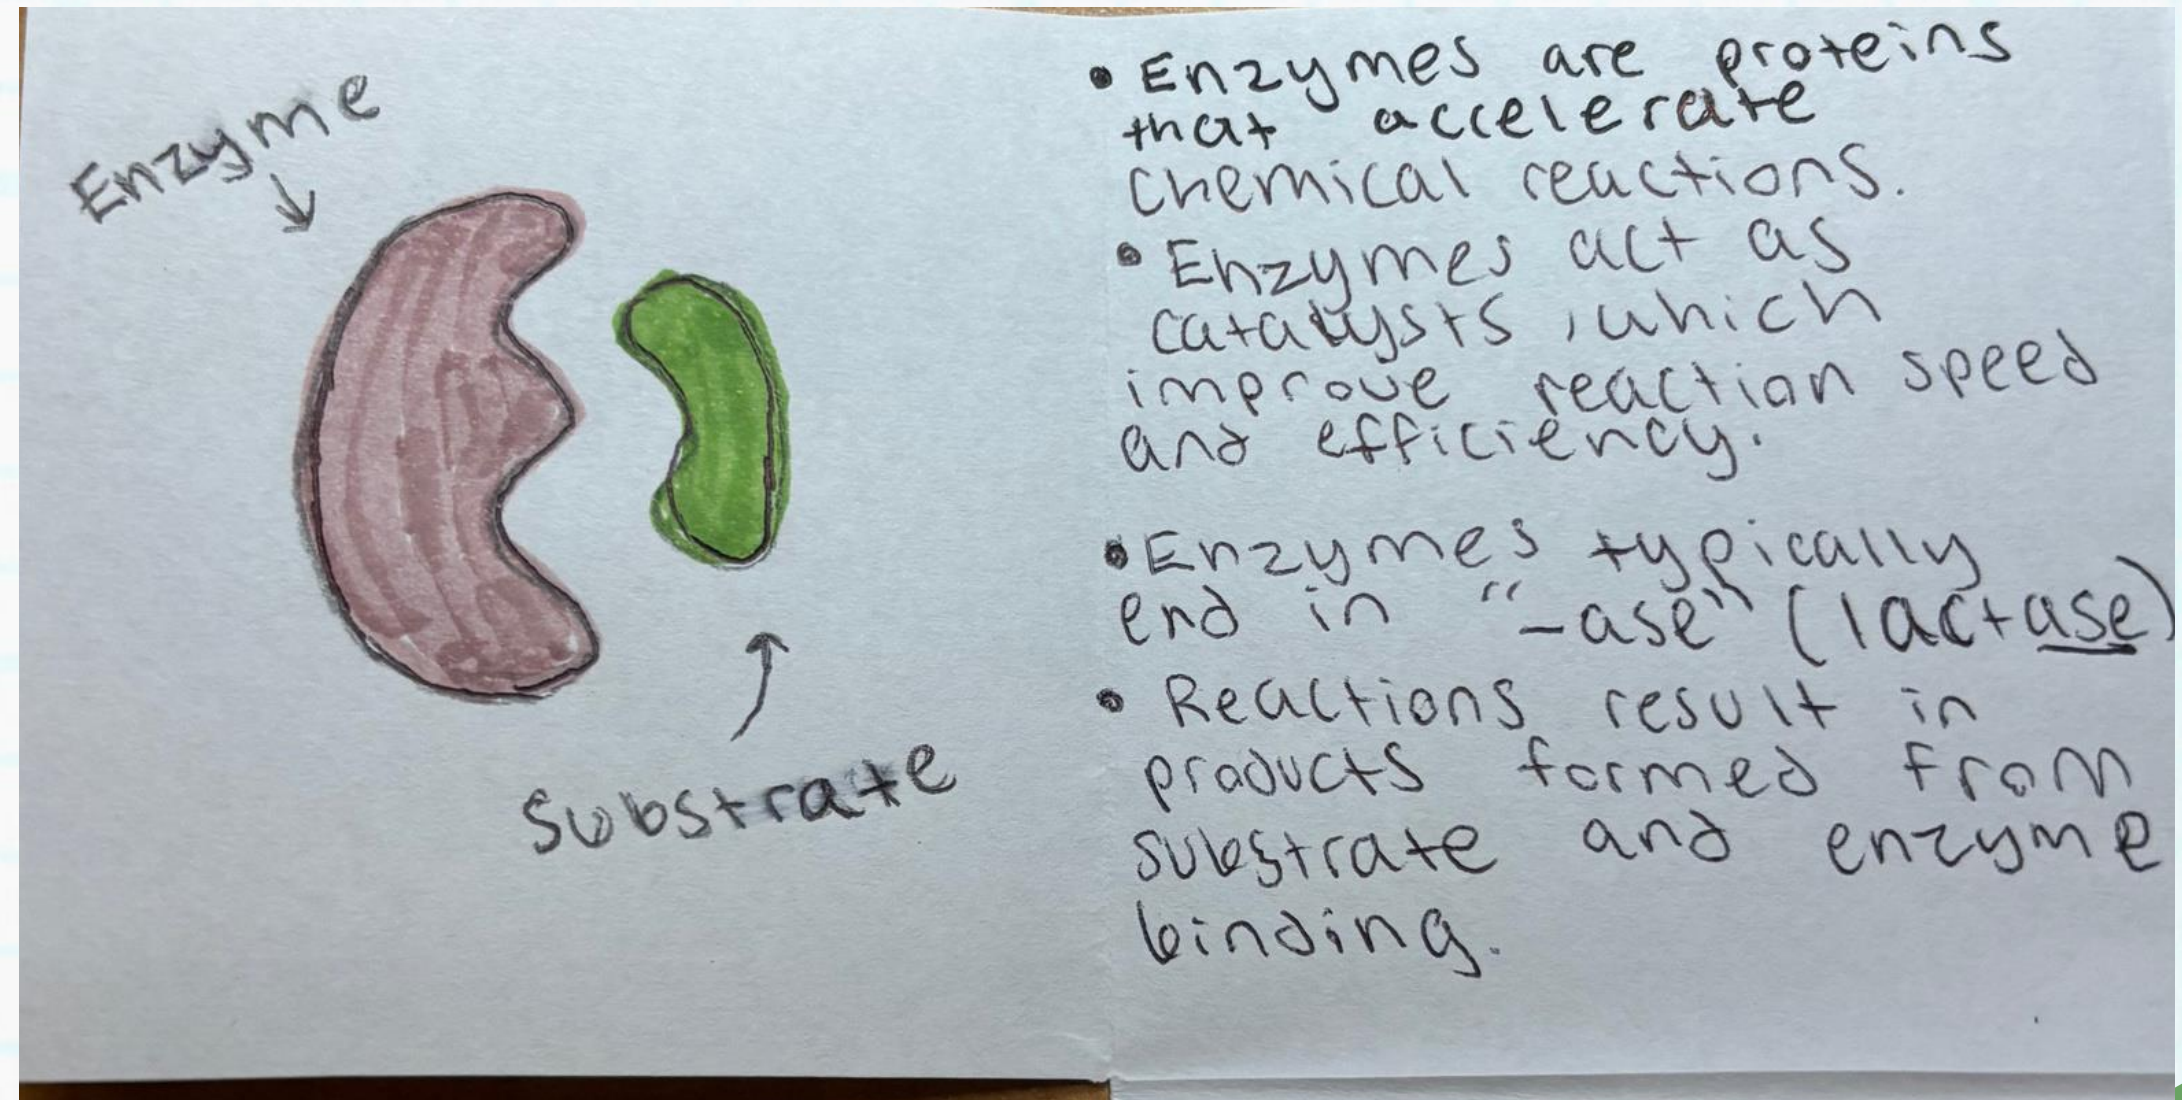 Enzyme
Substrate
• Enzymes are proteins
that accelerate
chemical reactions.
• Enzymes act as
catalysts, which
improve reaction speed
and efficiency.
• Enzymes typically
end in "-ase" (lactase)
• Reactions result in
products formed from
substrate and enzyme
binding.